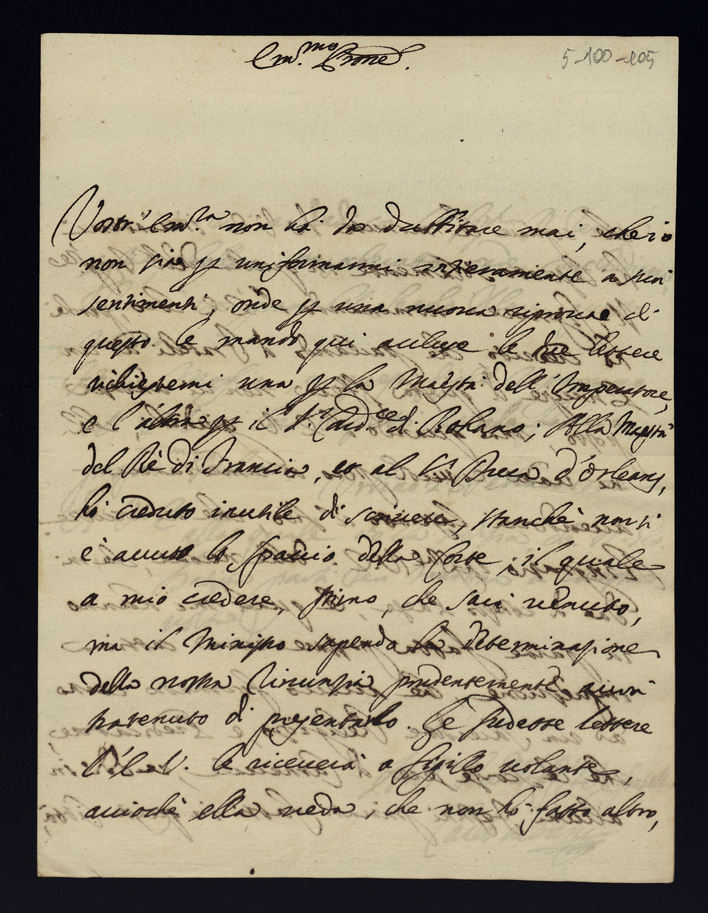 Em.mo Prone.
5-100-105
Vostr' Em.za non ha da dubbitare mai, che io
non sia p uniformarmi interamente a suoi
sentimenti, onde p una nuova riprova di
questo le mando qui accluse le due lettere
richieptemi una p la Maestà dell' Imperatore,
e l'altra p il S.r Card.le di Rohano; Alla Maestà
del Rè di Francia, et al S.r Duca d'Orleans,
hò creduto inutile di scrivere, stanche non si
è avuto lo spaccio della Corte, il quale
a mio credere, stimo, che sarà venuto,
ma il Ministro sapendo la determinazione
della nostra rinunzia prudentemente avrà
tratenuto di presentarlo. Le sudette lettere
l'E.V. le riceverà a sigillo volante,
acciochè ella veda, che non hò fatto altro,